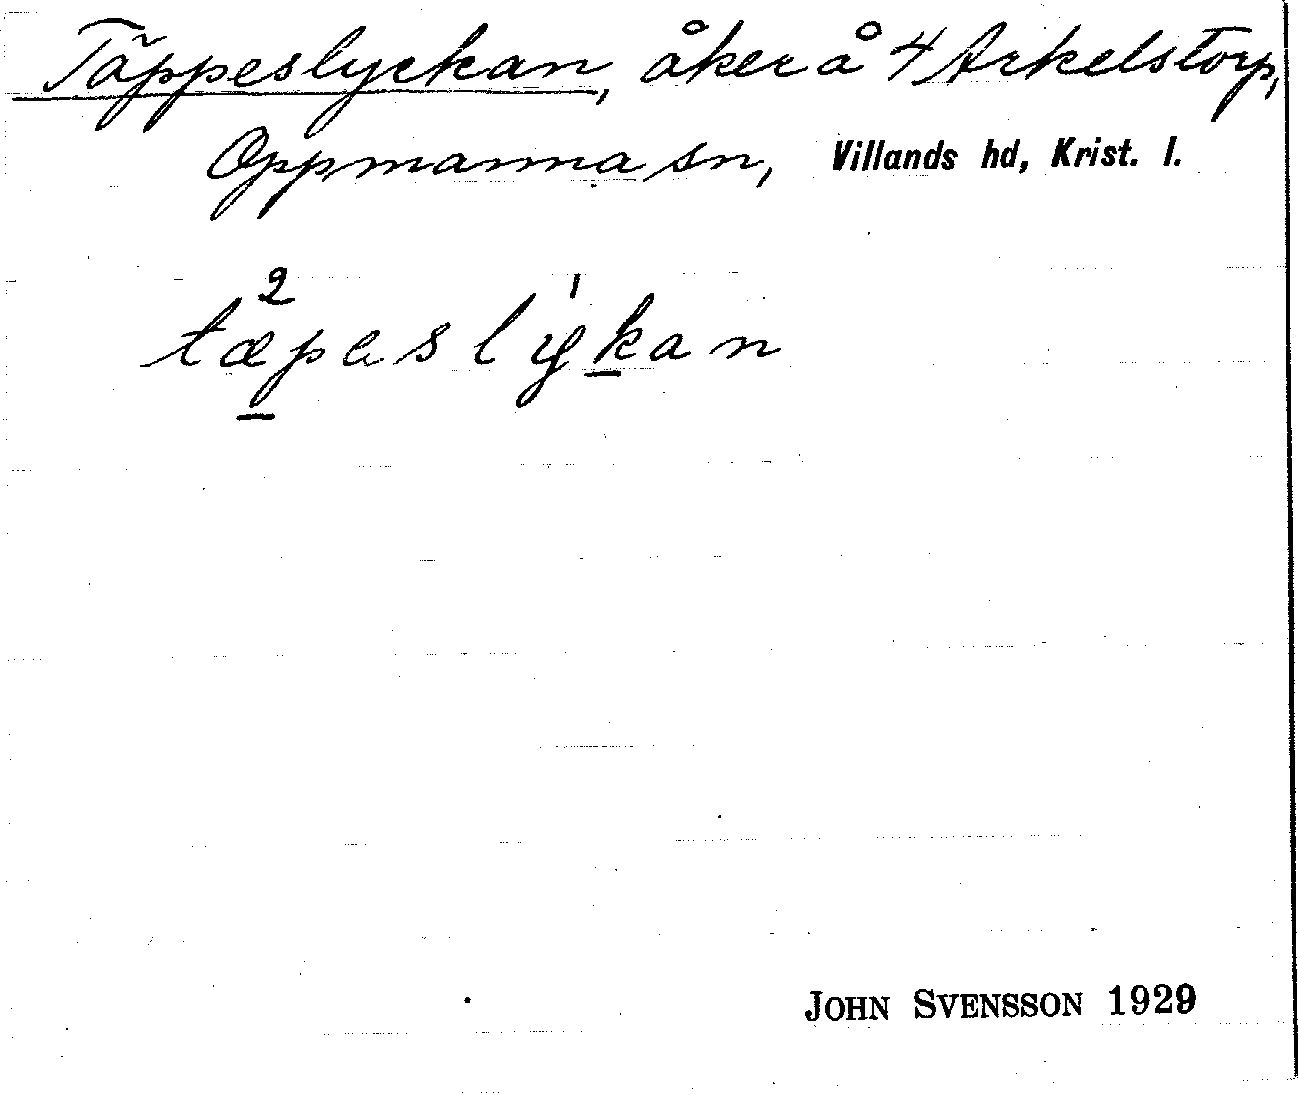 Täppeslyckan, åker å 4 Arkelstorp,
Oppmanna sn, Villands hd, Krist. l.
2 1
tæpeslykan
JOHN SVENSSON 1929